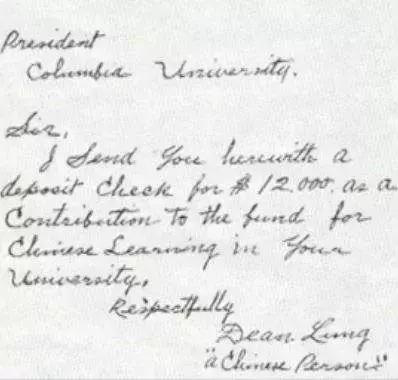 President
Columbia University.
Sir,
I Send You herewith a
deposit Check for $12.000. as a
Contribution To the fund for
Chinese Learning in Your
University.
Respectfully
Dean Lung
"a Chinese Person"